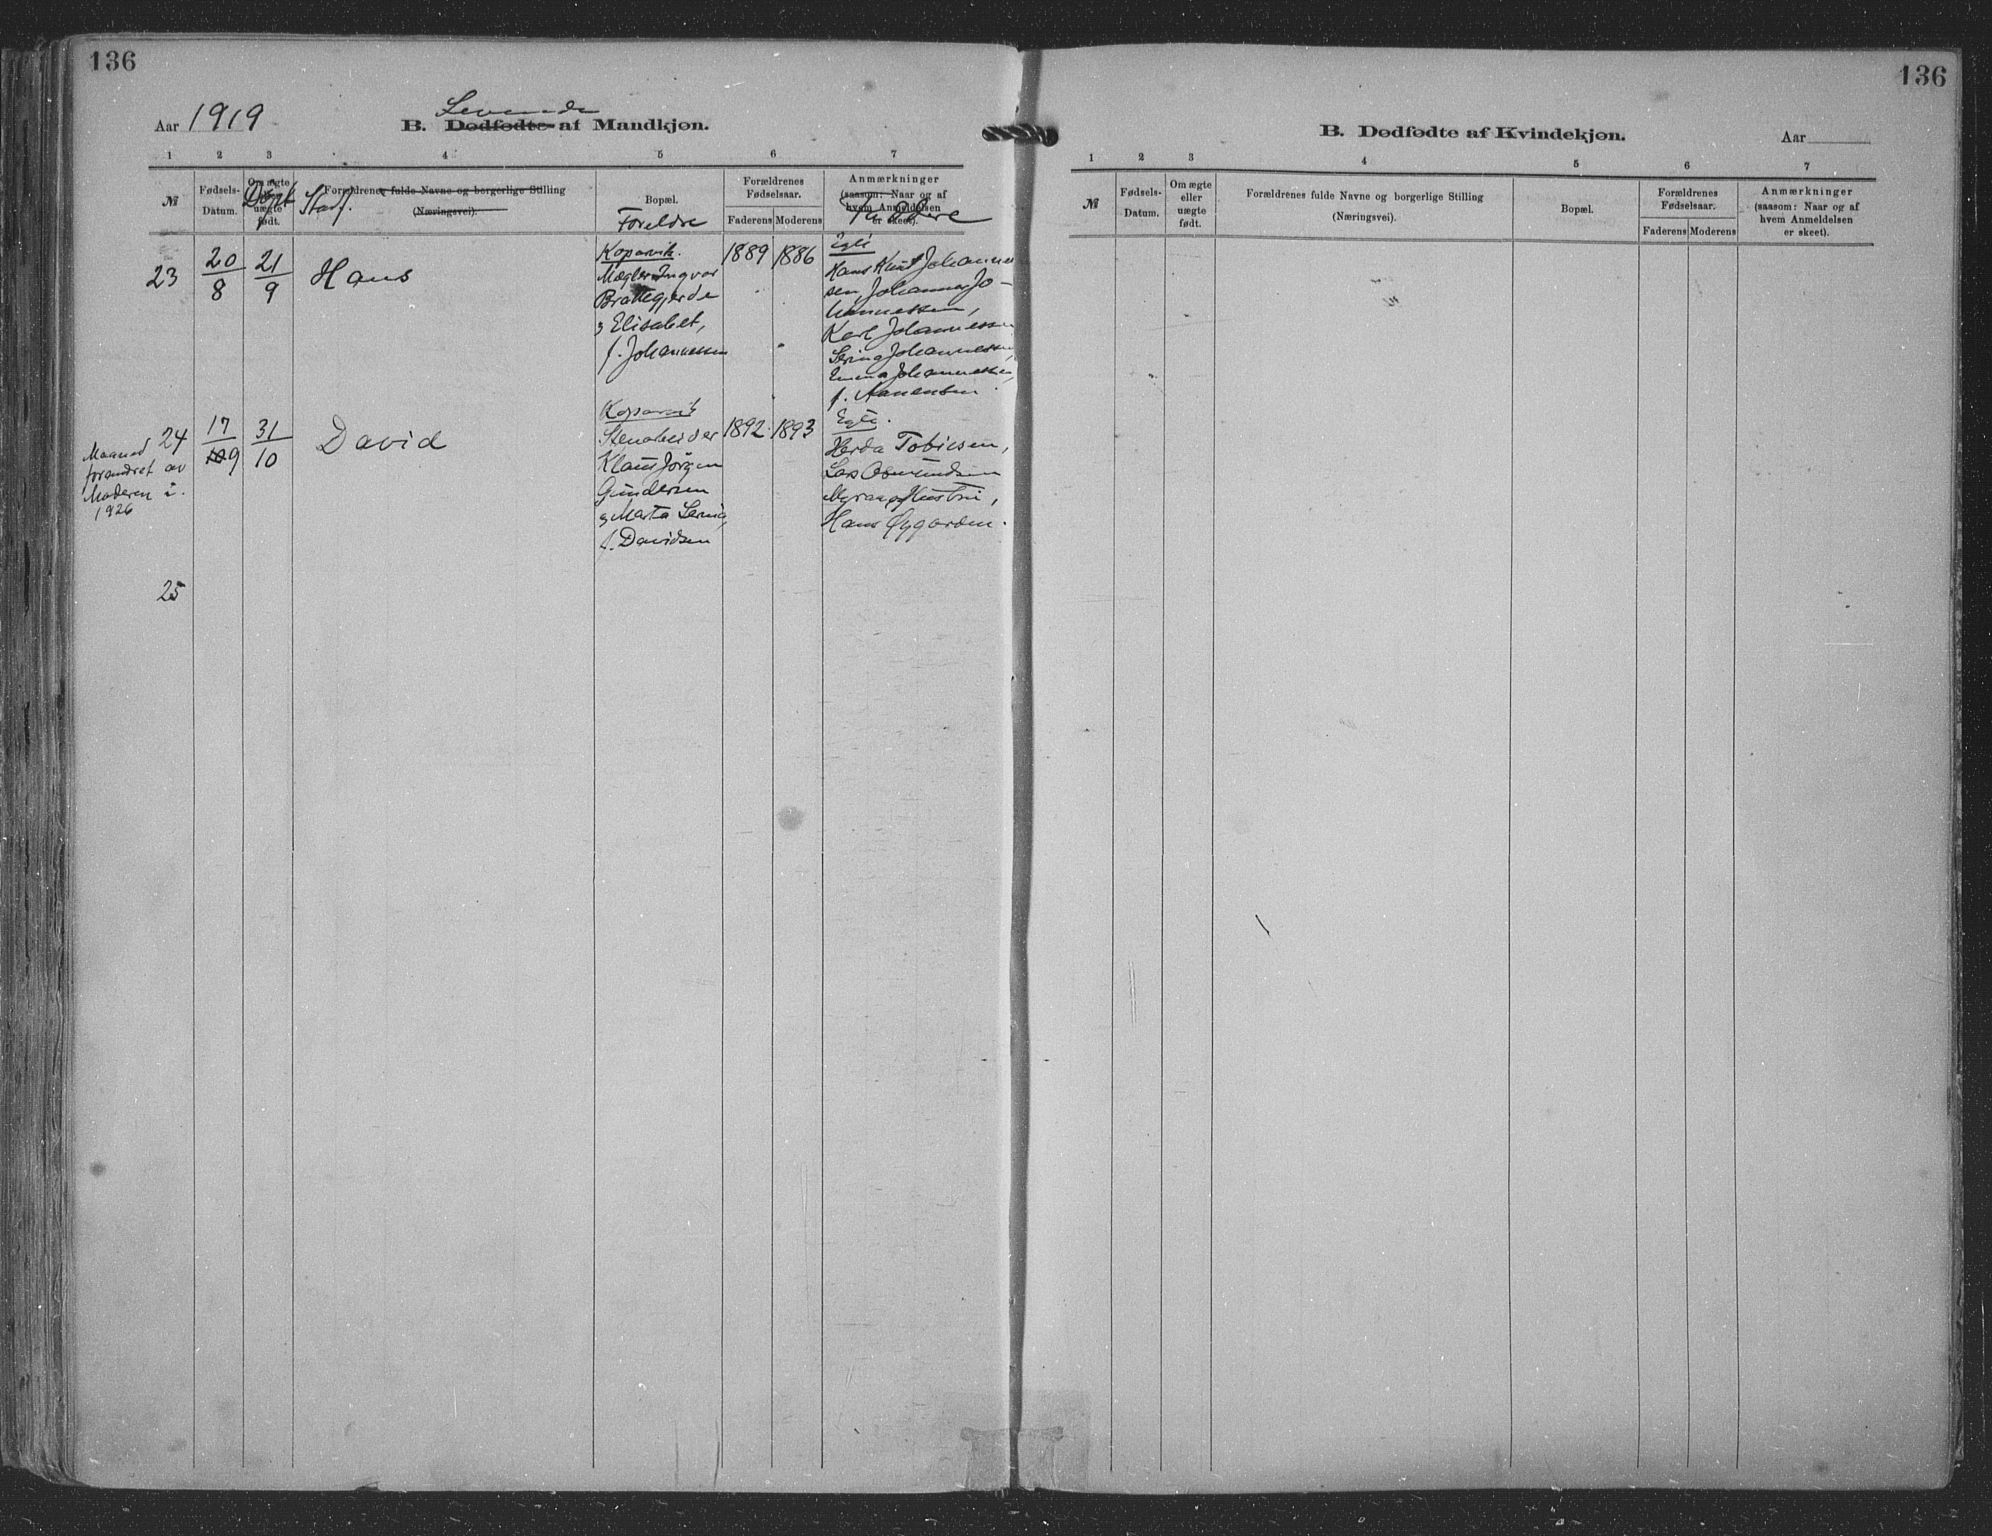 136
Aar 1919
Levende
B. Dødfødte af Mandkjøn.
1 2 3 4 5 6 7
№
Fødsels-
Datum.
Om ægte
eller
uægte
født.
Døpt
Forældrenes fulde Navne og borgerlige Stilling
(Næringsvei).
Bopæl.
Foreldre
Forældrenes
Fødselsaar.
Faderens Moderens
Anmærkninger
(saasom: Naar og af
hvem Anmeldelsen
er skeet).
Faddere
23
20/8
21/9
Hans
Kopervik.
Mægler Ingvar
Brattegjerde
Elisabet,
f. Johannessen
1889 1886
Hans Knut Johannes
sen, Johannes Jo-
hannessen,
Karl Johannessen
Johannessen,
Emma Johannessen,
f.
Maaned
forandret av
Moderen i
1926
24
17/9
31/10
David
Kopervik
Stenarbeider
Klaus Jørgen
Gundersen
Marta
f. Davidsen
1892 1893
Egte.
Herda Tobiesen,
Lars Osmundsen
Hustru,
Hans Øygarden.
25
136
B. Dødfødte af Kvindekjøn.
Aar
1 2 3 4 5 6 7
№
Fødsels-
Datum.
Om ægte
eller
uægte
født.
Forældrenes fulde Navne og borgerlige Stilling
(Næringsvei).
Bopæl.
Forældrenes
Fødselsaar.
Faderens Moderens
Anmærkninger
(saasom: Naar og af
hvem Anmeldelsen
er skeet).